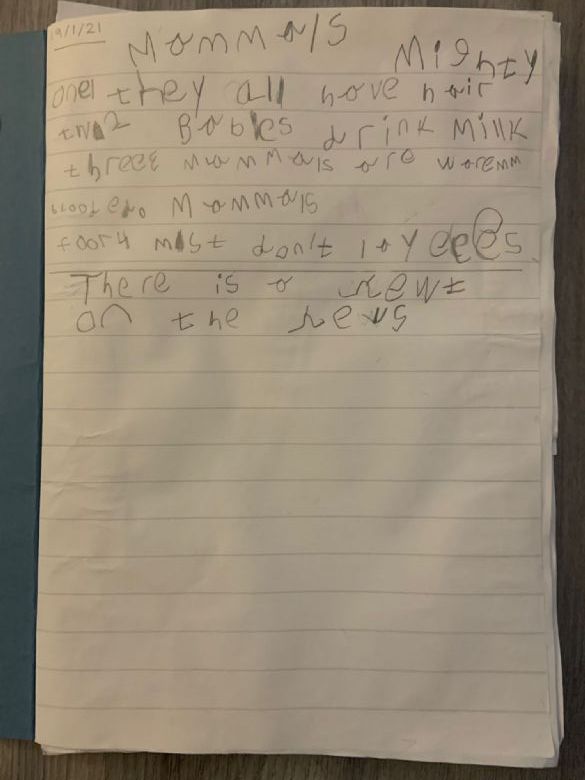 19/1/21
Mammals Mighty
one1 they all have hair
two2 Babies drink Milk
three3 mammals are waremm
Mammals
foor4 mist don't lay eggs
There is a newt
on the news